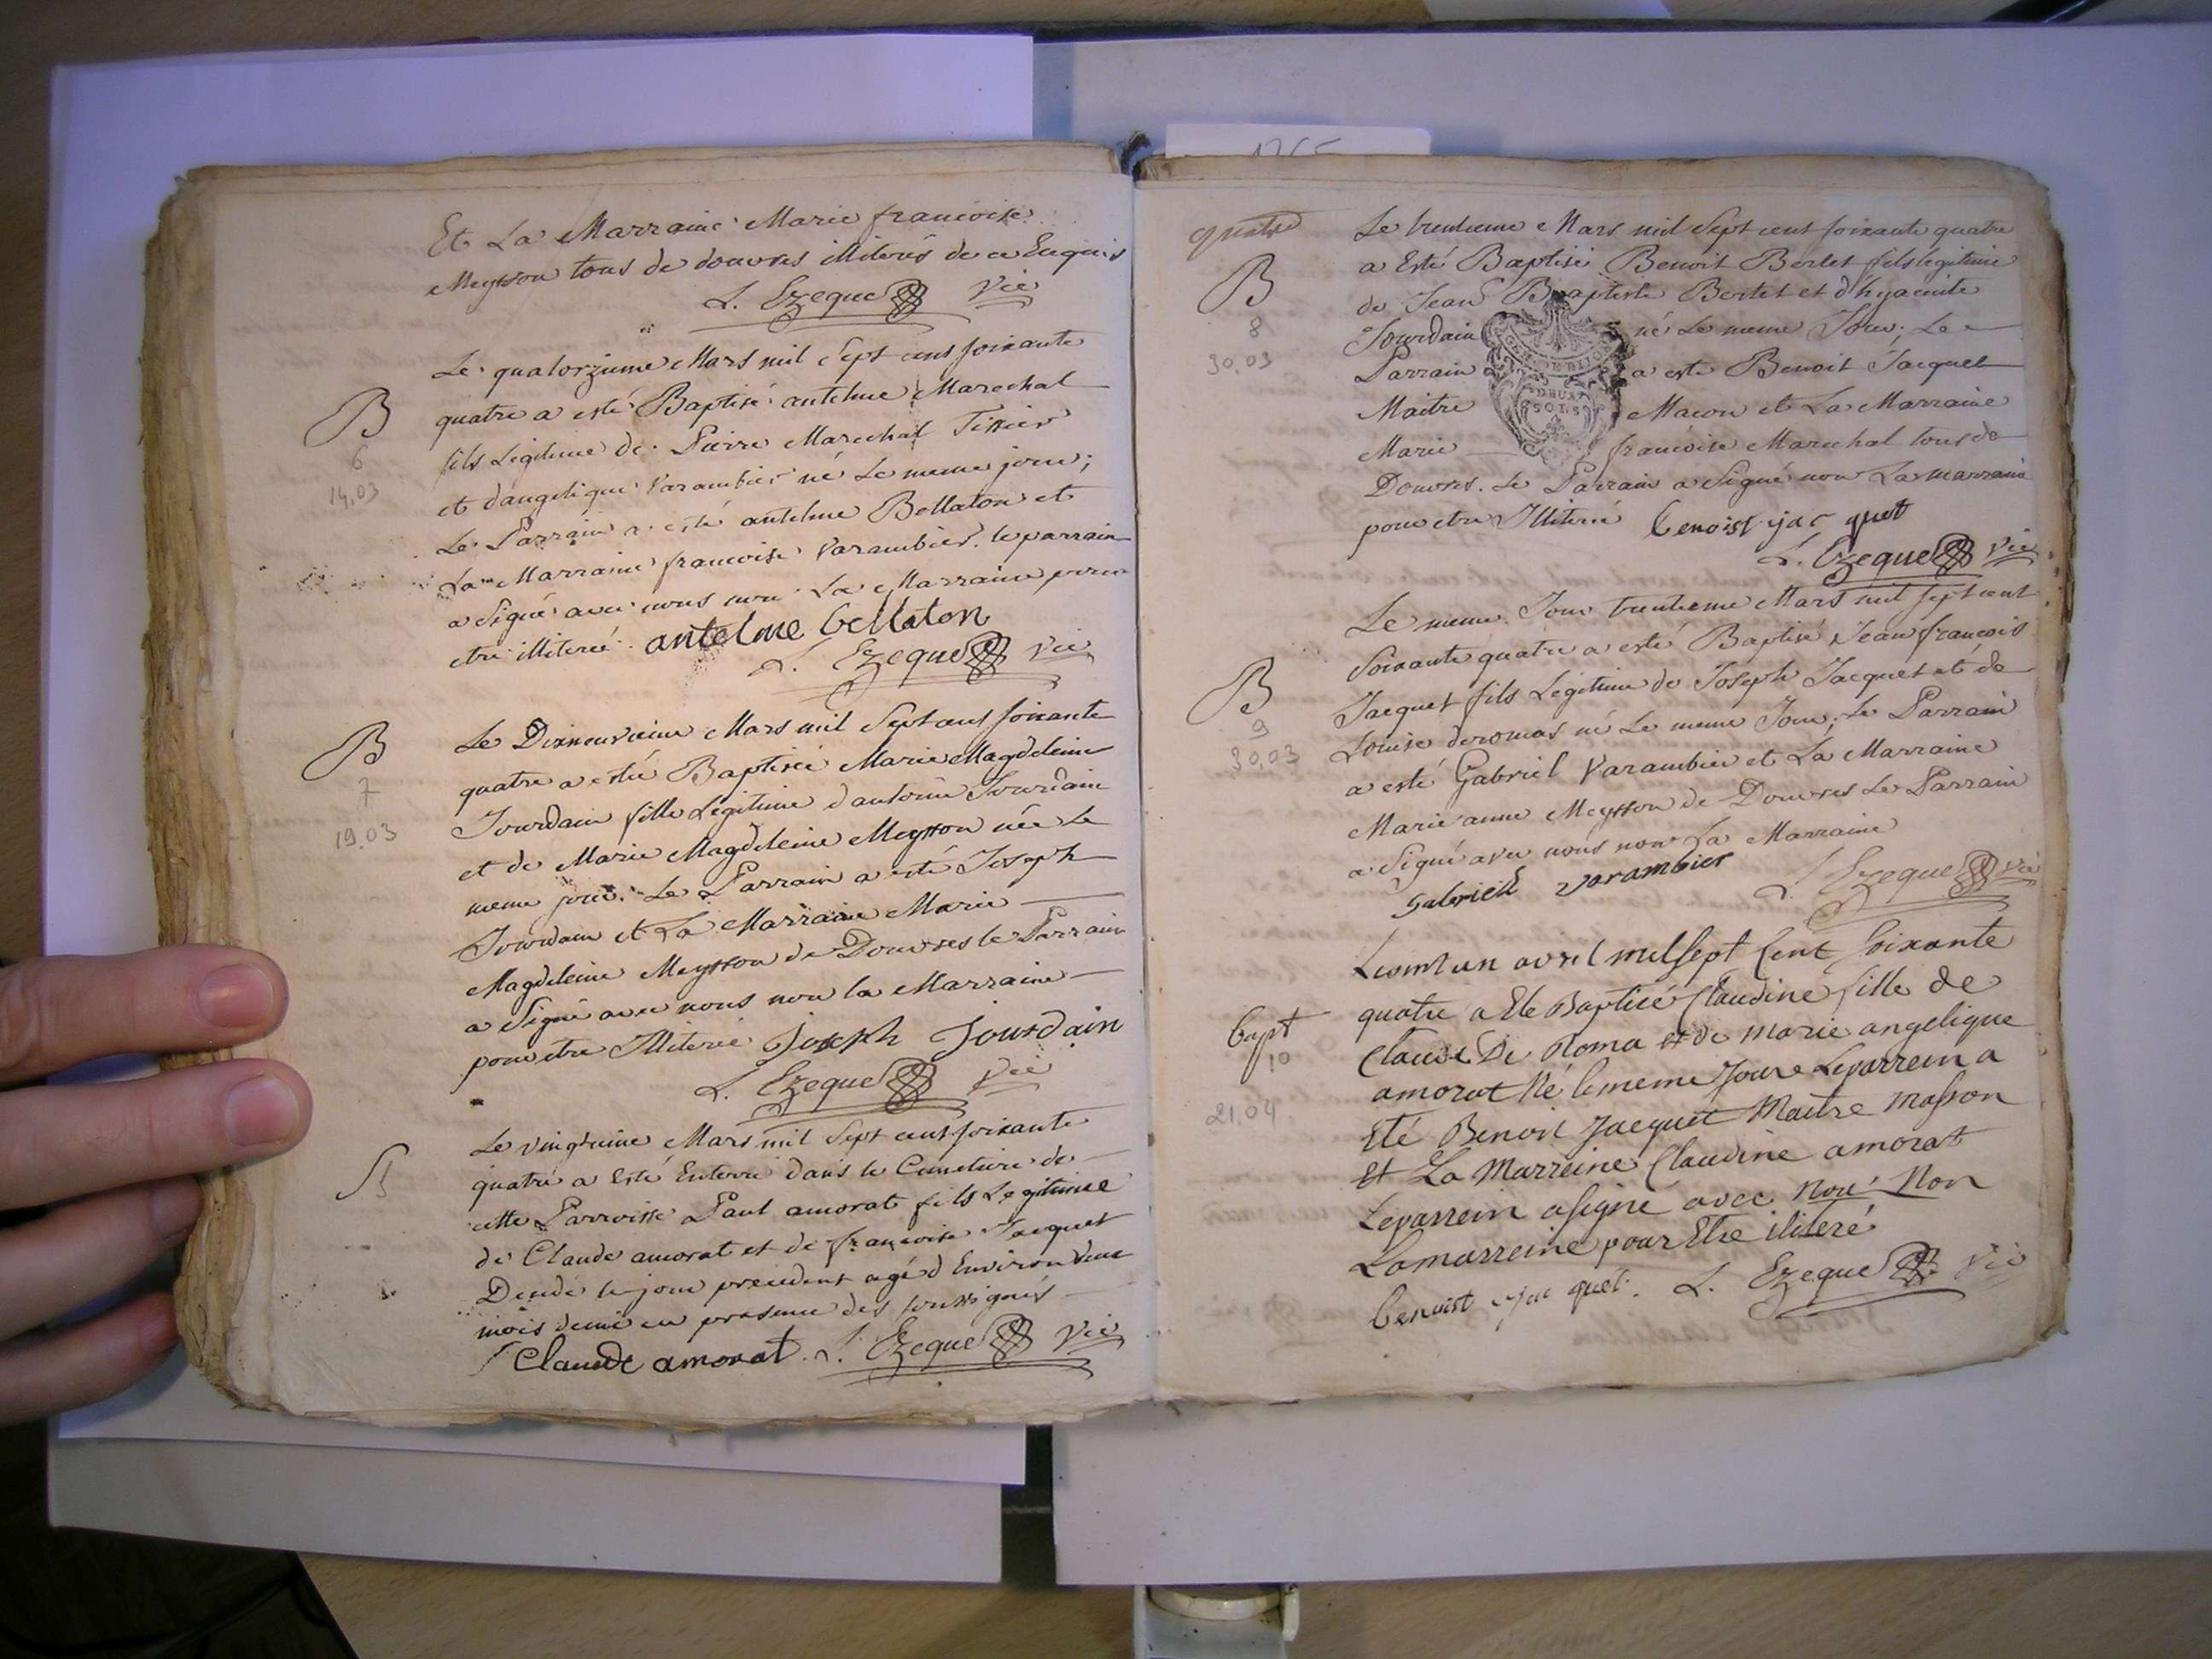 Et La Marraine Marie francoise
Meysson tous de douvres illiterés de ce Enquis
L. Ezeque Vic
Le quatorzieme Mars mil Sept cens soixante
quatre a esté Baptisé antelme Marechal
fils Legitime de Pierre Marechal Tissier
et dangelique Varambier né Le meme jour;
Le Parrain a esté antelme Bellaton et
La Marraine francoise Varambier. le parrain
a Signé avec nous non La Marraine pour
etre illiteré. antelme bellaton
L. Ezeque Vic
B
6
14.03
Le Dixneuvieme Mars mil Sept cens soixante
quatre a estée Baptisée Marie Magdeleine
Jourdain fille Legitime d'antoine Jourdain
et de Marie Magdeleine Meysson née le
meme jour. Le Parrain a esté Joseph
Jourdain et La Marraine Marie
Magdeleine Meysson de Douvres le Parrain
a Signé avec nous non la Marraine
pour etre Illiterée Joseph Jourdain
L. Ezeque Vic
B
7
19.03
Le vingtieme Mars mil Sept cent soixante
quatre a esté Enterré dans le Cimetiere de
cette Parroisse Paul amorat fils Legitime
de Claude amorat et de francoise Jacquet
Decedé le jour precedent agé d'Environ deux
mois demi en presence des soussignés
Claude amorat. L. Ezeque Vic
S
quatre
Le trentieme Mars mil Sept cent soixante quatre
a Esté Baptisé Benoit Bertet fils légitime
de Jean Baptiste Bertet et d'hyacinte
Jourdain né Le meme Jour; Le
Parrain a esté Benoit Jacquet
Maitre Macon et La Marraine
Marie francoise Marechal tous de
Douvres. Le Parrain a Signé non La marraine
pour etre Illiteré benoist jac quet
L. Ezeque Vic
B
8
30.03
Le meme Jour trentieme Mars mil sept cent
Soixante quatre a esté Baptisé Jean francois
Jacquet fils Legitime de Joseph Jacquet et de
Louise deromas né Le meme Jour; Le Parrain
a esté Gabriel Varambier et La Marraine
Marie anne Meysson de Douvres Le Parrain
a Signé avec nous non La Marraine
Gabriell varambier L. Ezeque Vic
B
9
30.03
avril mil Sept Cent Soixante
quatre a Ete Baptisé Claudine fille de
Claude De Roma et de marie angelique
amorat Né le meme Jour Le parrein a
Eté Benoit Jacquet Maitre masson
Et La Marreine Claudine amorat
Le parrein a signé avec Nou' Non
La marreine pour Etre ilateré
benoist jac quet. L. Ezeque Vic
bapt
10
21.04